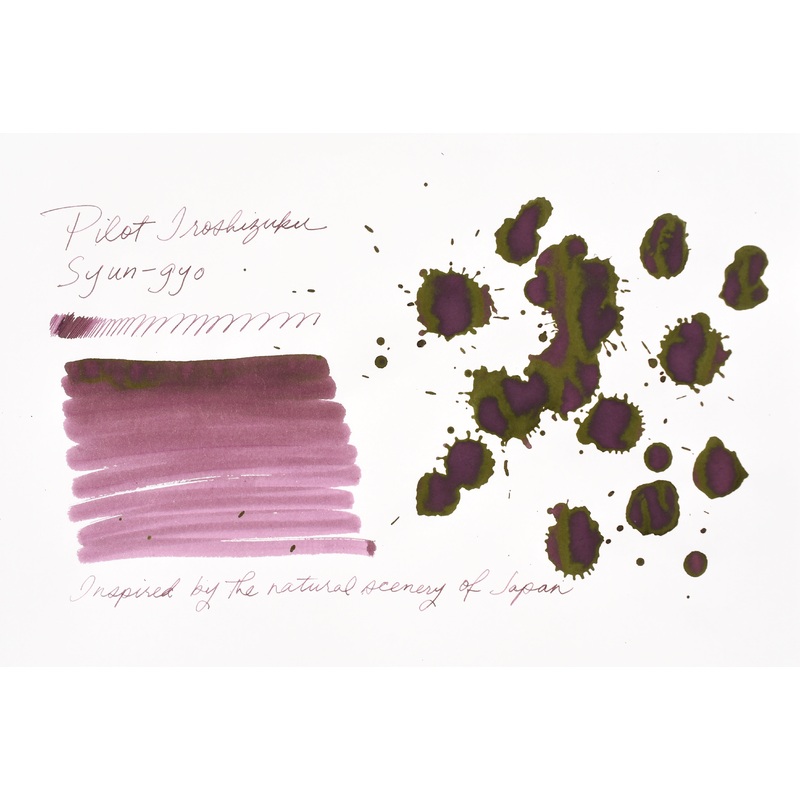 Pilot Iroshizuku
Syun-gyo
Inspired by the natural scenery of Japan